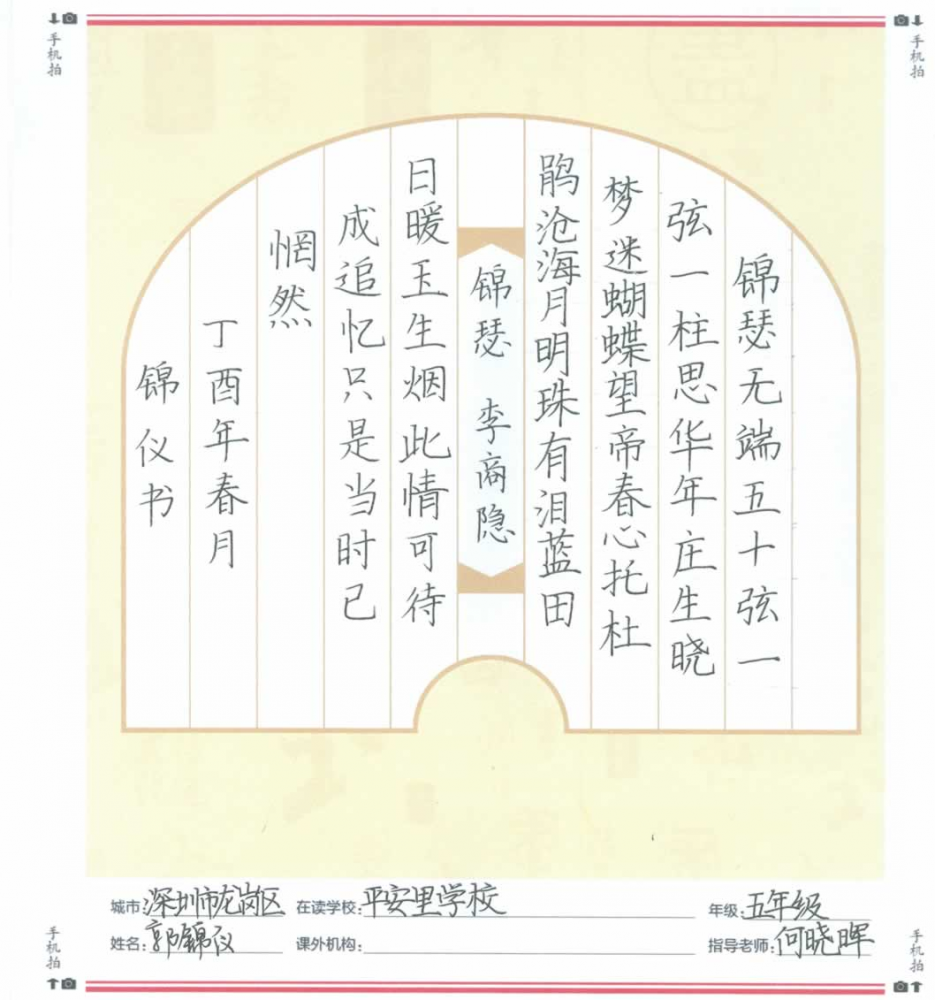 手机拍
手机拍
锦瑟无端五十弦一
弦一柱思华年庄生晓
梦迷蝴蝶望帝春心托杜
鹃沧海月明珠有泪蓝田
锦瑟 李商隐
日暖玉生烟此情可待
成追忆只是当时已
惘然
丁酉年春月
锦仪书
城市:深圳市龙岗区 在读学校:平安里学校 年级:五年级
姓名:郭锦仪 课外机构: 指导老师:何晓晖
手机拍
手机拍